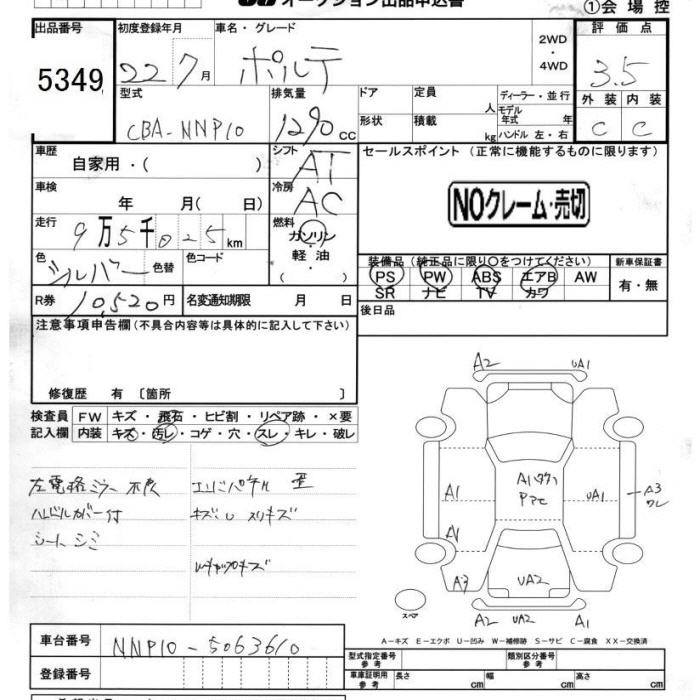 オークション出品申込書 ①会場控
出品番号 初度登録年月 車名・グレード 2WD・4WD 評価点
5349 22 7月 ポルテ 3.5
型式 排気量 ドア 定員 人 ディーラー・並行 外装 内装
CBA-NNP10 1290 cc 形状 積載 kg モデル年式 年 ハンドル 左・右 C C
車歴 シフト セールスポイント (正常に機能するものに限ります)
自家用・( ) AT
車検 冷房
年 月( 日) AC NOクレーム・売切
走行 燃料
9万5千025km ガソリン・
色 色替 色コード 軽油・
シルバー ( )
装備品 (純正品に限り〇をつけてください) 新車保証書
PS PW ABS エアB AW 有・無
SR ナビ TV カワ
R券 10,520円 名変通知期限 月 日 後日品
注意事項申告欄(不具合内容等は具体的に記入して下さい)
修復歴 有〔箇所 〕
検査員 FW キズ・飛石・ヒビ割・リペア跡・×要
記入欄 内装 キズ・汚レ・コゲ・穴・スレ・キレ・破レ
左電格ミラー不良
ハンドルカバー付 キズ スリキズ
シート シミ
A2 UA1
A1 A1 UA1 A3
A1 ワレ
A3 UA2
スペア A2 UA2 A1
A-キズ E-エクボ U-凹み W-補修跡 S-サビ C-腐食 XX-交換済
車台番号 NNP10-5063610
登録番号
型式指定番号 参考 類別区分番号 参考
車庫証明用 参考 長さ cm 幅 cm 高さ cm